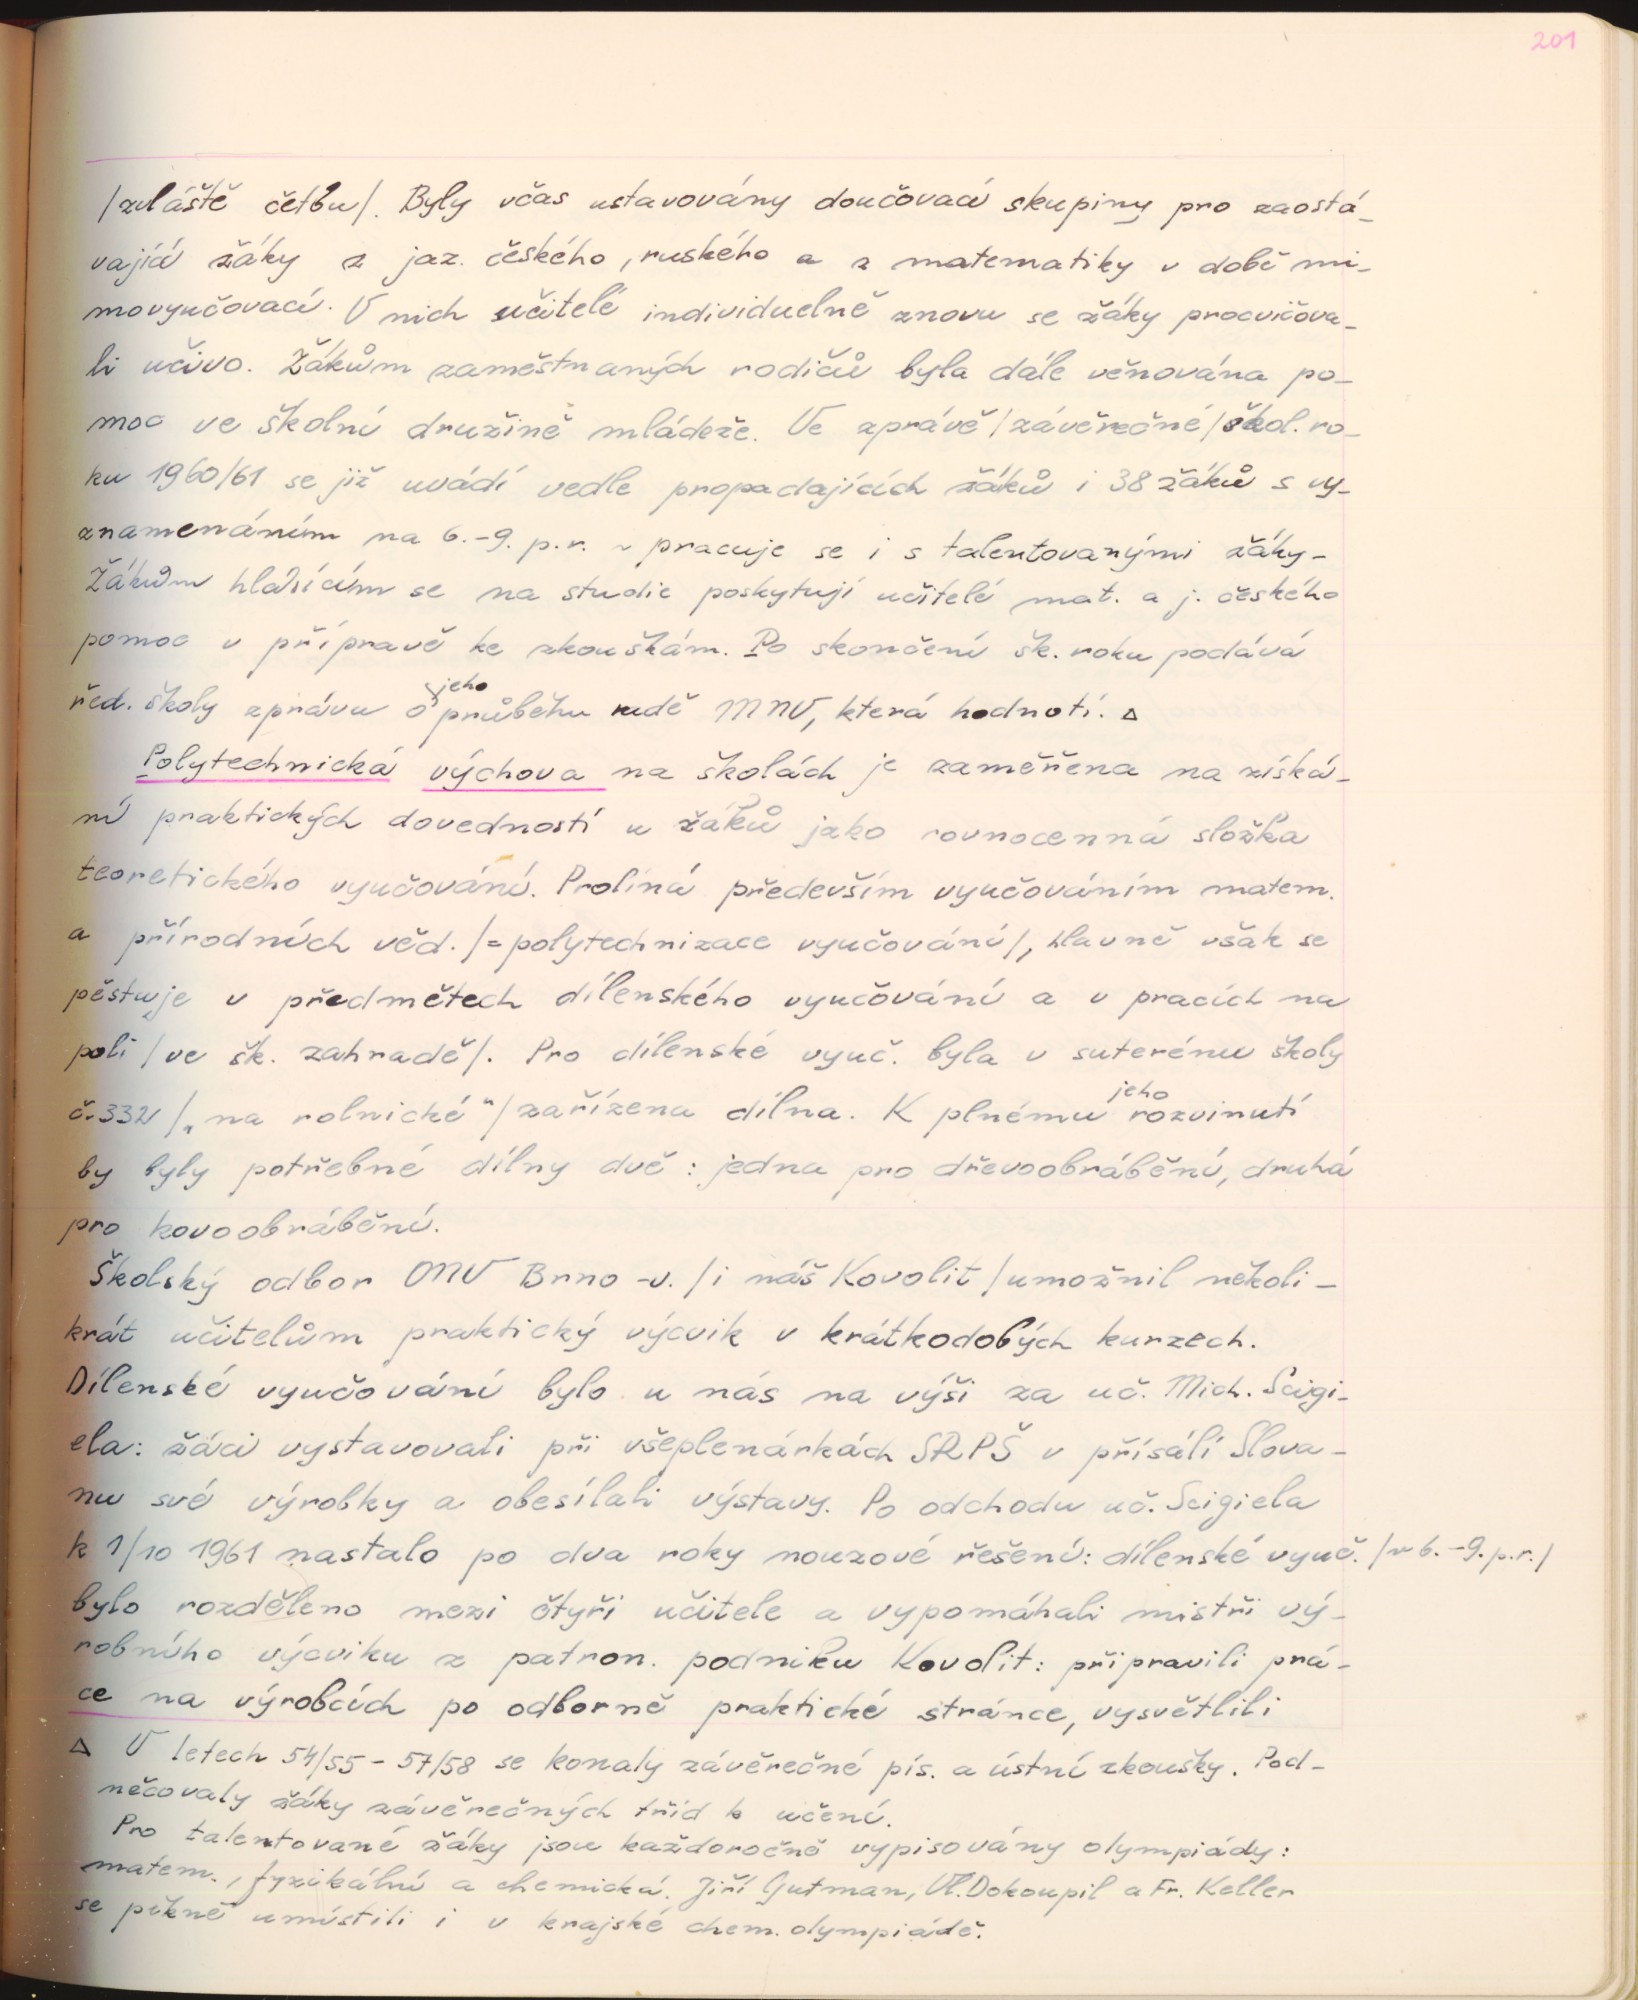 201
/zvláště četbu/. Byly včas ustavovány doučovací skupiny pro zaostá-
vající žáky z jaz. českého, ruského a z matematiky v době mi-
movyučovací. V nich učitelé individuelně znovu se žáky procvičova-
li učivo. Žákům zaměstnaných rodičů byla dále věnována po-
moc ve školní družině mládeže. Ve zprávě /závěrečné/ škol. ro-
ku 1960/61 se již uvádí vedle propadajících žáků i 38 žáků s vy-
znamenáním na 6.-9. p.r. - pracuje se i s talentovanými žáky-
Žákům hlásícím se na studie poskytují učitelé mat. a j. českého
pomoc v přípravě ke zkouškám. Po skončení šk. roku podává
řed. školy zprávu o jeho průběhu radě MNV, která hodnotí. △
Polytechnická výchova na školách je zaměřena na získá-
ní praktických dovedností u žáků jako rovnocenná složka
teoretického vyučování. Prolíná především vyučováním matem.
a přírodních věd. /=polytechnizace vyučování/, hlavně však se
pěstuje v předmětech dílenského vyučování a v pracích na
poli /ve šk. zahradě/. Pro dílenské vyuč. byla v suterénu školy
č. 332 /„na rolnické"/ zařízena dílna. K plnému jeho rozvinutí
by byly potřebné dílny dvě: jedna pro dřevoobrábění, druhá
pro kovoobrábění.
Školský odbor ONV Brno-v. /i náš Kovolit/ umožnil několi-
krát učitelům praktický výcvik v krátkodobých kurzech.
Dílenské vyučování bylo u nás na výši za uč. Mich. Scigi-
ela: žáci vystavovali při všeplenárkách SRPŠ v přísálí Slova-
nu své výrobky a obesílali výstavy. Po odchodu uč. Scigiela
k 1/10 1961 nastalo po dva roky nouzové řešení: dílenské vyuč. /v 6.-9. p.r./
bylo rozděleno mezi čtyři učitele a vypomáhali mistři vý-
robního výcviku z patron. podniku Kovolit: připravili prá-
ce na výrobcích po odborně praktické stránce, vysvětlili
△ V letech 54/55 - 57/58 se konaly závěrečné pís. a ústní zkoušky. Pod-
něcovaly žáky závěrečných tříd k učení.
Pro talentované žáky jsou každoročně vypisovány olympiády:
matem., fyzikální a chemická. Jiří Gutman, Vl. Dokoupil a Fr. Keller
se pěkně umístili i v krajské chem. olympiádě.